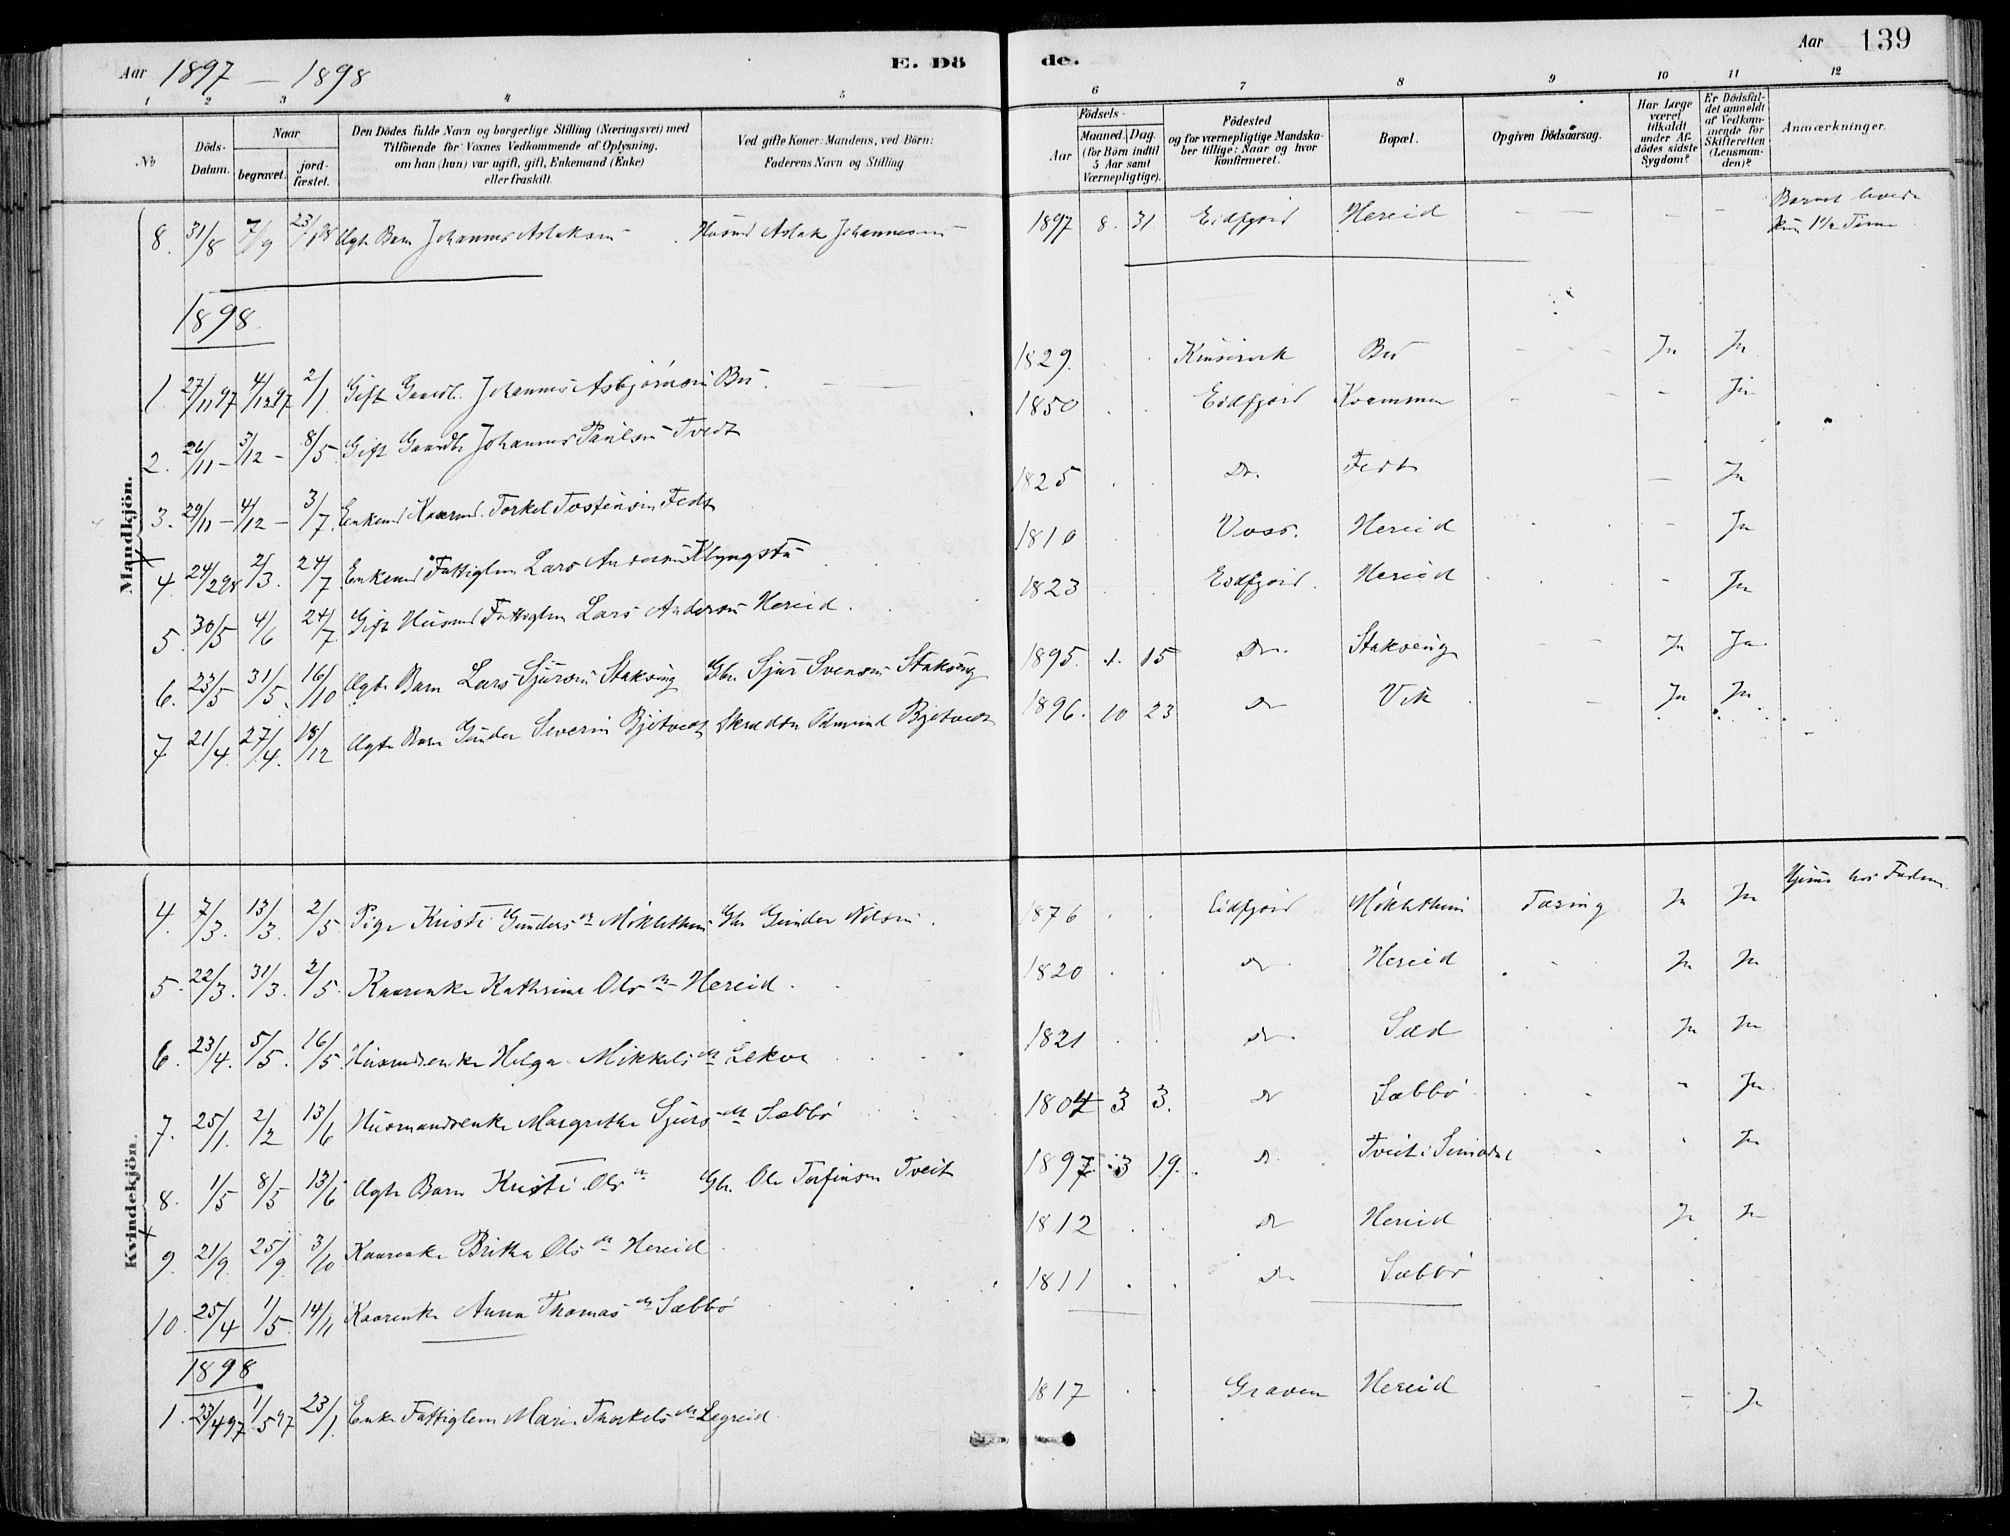 Aar 1897 — 1898
E. Dö
de.
Aar 139
1 2 3 4 5 6 7 8 9 10 11 12
No
Döds-Datum.
Naar
begravet.
jord-fæstet.
Den Dödes fulde Navn og borgerlige Stilling (Næringsvei) med
Tilföiende for Voxnes Vedkommende af Oplysning,
om han (hun) var ugift, gift, Enkemand (Enke)
eller fraskilt.
Ved gifte Koner: Mandens, ved Börn:
Faderens Navn og Stilling.
Födsels-
Aar
Maaned. Dag.
(for Börn indtil
5 Aar samt
Værnepligtige).
Födested
og for værnepligtige Mandska-
ber tillige: Naar og hvor
konfirmeret.
Bopæl.
Opgiven Dödsaarsag.
Har Læge
været
tilkaldt
under Af-
dödes sidste
Sygdom?
Er Dödsfal-
det anmeldt
af Vedkom-
mende for
Skifteretten
(Lensman-
den)?
Anmærkninger.
Mandkjön.
8. 31/8 7/9 23/1 98 Ægte Barn Johannes Aslaksen Husmd Aslak Johannesen 1897 8. 31 Eidfjord Hereid — — — — Barnet levede
kun 1 1/2 Time
1898
1 27/11 97 4/12 97 2/1 Gift Gaardb. Johannes Asbjørnsen Bu. 1829. Kinservik Bu Ja Ja
2. 26/11 — 3/12 — 8/5 Gift Gaardbr Johannes Paulsen Tvedt 1850 Eidfjord Kvammen — Ja
3. 29/11 — 4/12 — 3/7 Enkemd Kaarmd. Torkel Tostensen Fedt 1825 Do. Fedt — Ja
4. 24/2 98 2/3. 24/7 Enkemd Fattiglem Lars Andersen Klyngstu 1810 Voss. Hereid — Ja
5. 30/5 4/6 24/7 Gift Husmd Fattiglem Lars Andersen Hereid. 1823 Eidfjord. Hereid — Ja
6. 23/5 31/5. 16/10 Ægte Barn Lars Sjursen Staksing Gbr. Sjur Svensen Stakseng 1895. 1. 15 Do. Stakseng Ja Ja
7 21/4. 27/4. 18/12 Ægte Barn Gunder Severin Bjotvedt Skrædder Edmund Bjotvedt 1896. 10 23 Do Vik Ja Ja
Kvindekjön.
4. 7/3. 13/3. 2/5 Pige Kristi Gundersdr Mikletun Gbr Gunder Nilsen. 1876 Eidfjord Mikletun Tæring Ja Ja Hjemme hos Faderen
5. 22/3. 31/3. 2/5. Kaarenke Kathrine Olsdr Hereid. 1820 do Hereid Ja Ja
6. 23/4. 5/5. 16/5. Husmdsenke Helga Mikkelsdr Lekve 1821 do Sæd Ja Ja
7. 25/1. 2/2 13/6 Husmandsenke Margrethe Sjursdr Sæbbø 1804 3 3. do Sæbbø - Ja
8. 1/5 8/5 13/6 Ægte Barn Kristi Olsdr Gbr. Ole Torfinsen Tveit 1897. 3 19. do. Tveit i Simodal - Ja
9. 21/9. 25/9. 3/10 Kaarenke Britha Olsdr Hereid 1812 do Hereid Ja Ja
10. 25/4 1/5. 14/11 Kaarenke Anna Thomasdr Sæbbø 1811 do Sæbbø
1898
1. 23/4 97 1/5 97 23/1. Enke Fattiglem Mari Thorkelsdr Legreid 1817 Graven Hereid — Ja